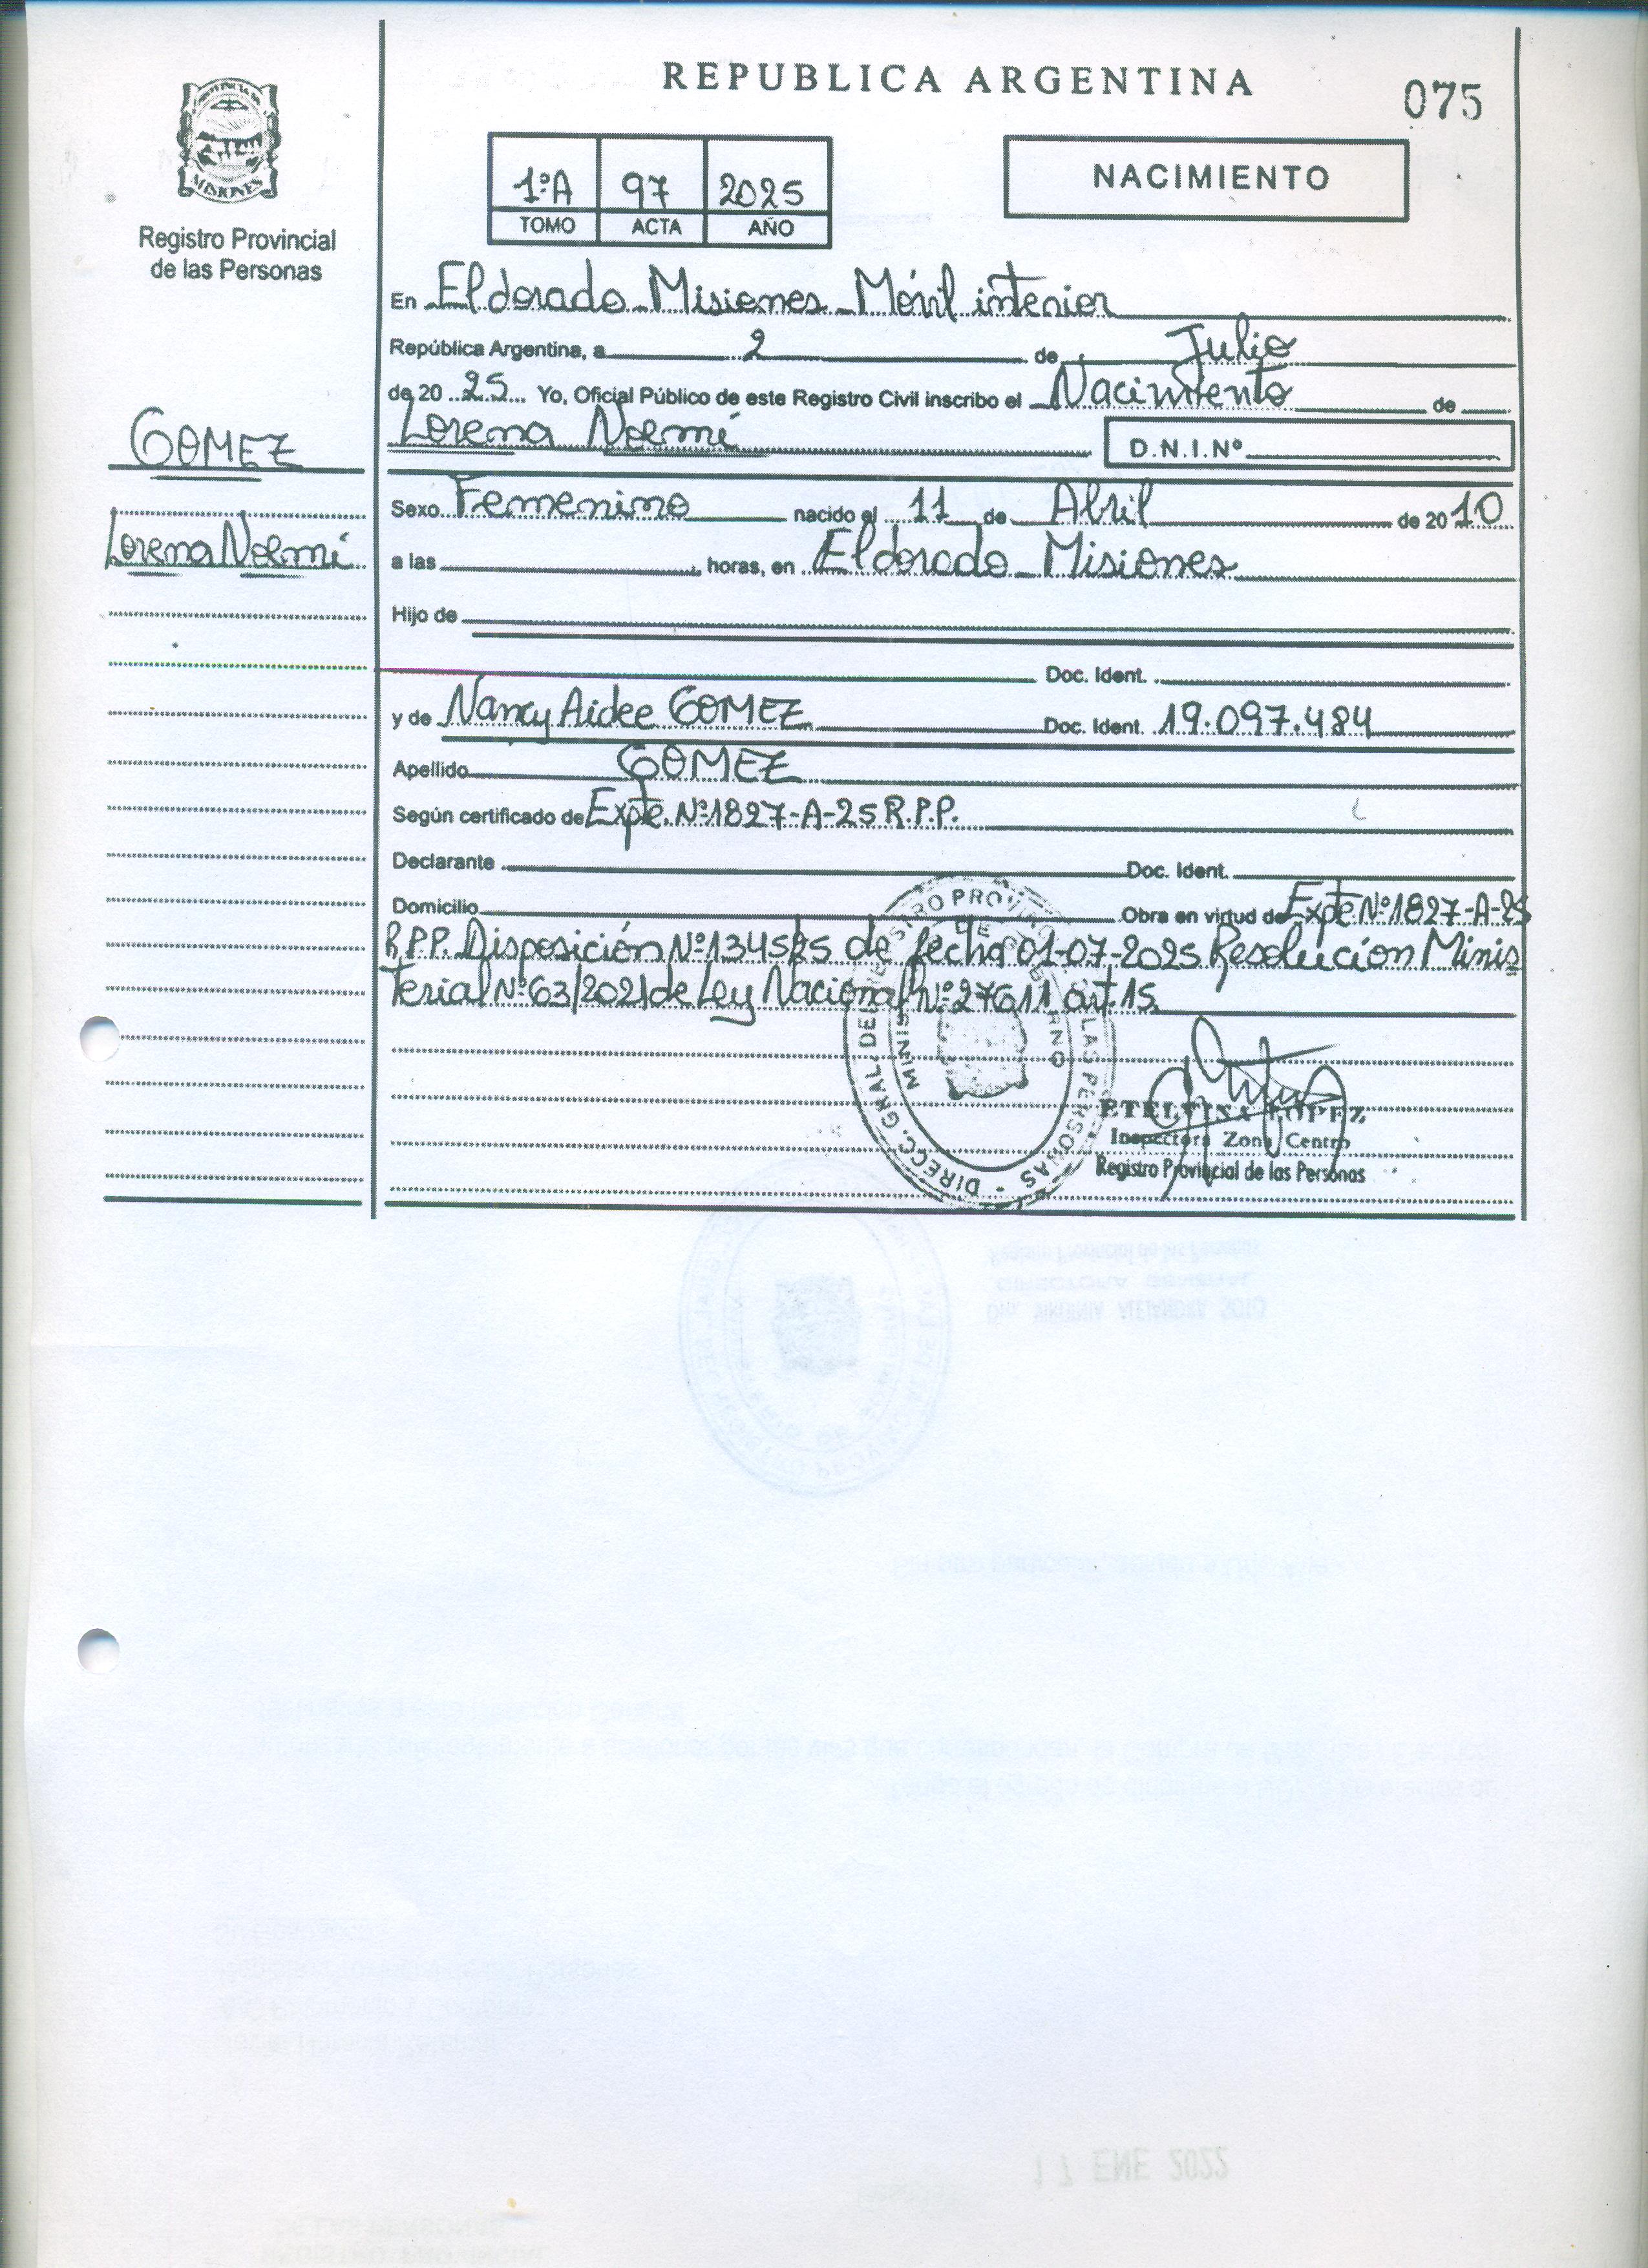 REPUBLICA ARGENTINA
075
PROVINCIA DE
MISIONES
Registro Provincial
de las Personas
1ºA 97 2025
TOMO ACTA AÑO
NACIMIENTO
En Eldorado Misiones Móvil interior
República Argentina, a 2 de Julio
de 20 25 Yo, Oficial Público de este Registro Civil inscribo el Nacimiento de
Lorena Noemí D.N.I.Nº
GOMEZ
Lorena Noemí
Sexo Femenino nacido el 11 de Abril de 20 10
a las horas, en Eldorado Misiones
Hijo de
Doc. Ident.
y de Nancy Aidee GOMEZ Doc. Ident. 19.097.484
Apellido GOMEZ
Según certificado de Expte. Nº 1827-A-25 R.P.P.
Declarante Doc. Ident.
Domicilio Obra en virtud de Expte Nº 1827-A-25
R.P.P. Disposición Nº 1345/25 de fecha 01-07-2025 Resolución Minis
terial Nº 63/2021 de Ley Nacional Nº 27611 art. 15
DIRECC. GRAL. DEL REGISTRO PROVINCIAL DE LAS PERSONAS
MINISTERIO DE GOBIERNO
ETELVINA LOPEZ
Inspectora Zona Centro
Registro Provincial de las Personas
Registro Provincial de las Personas
DIRECTORA GENERAL
17 ENE 2022